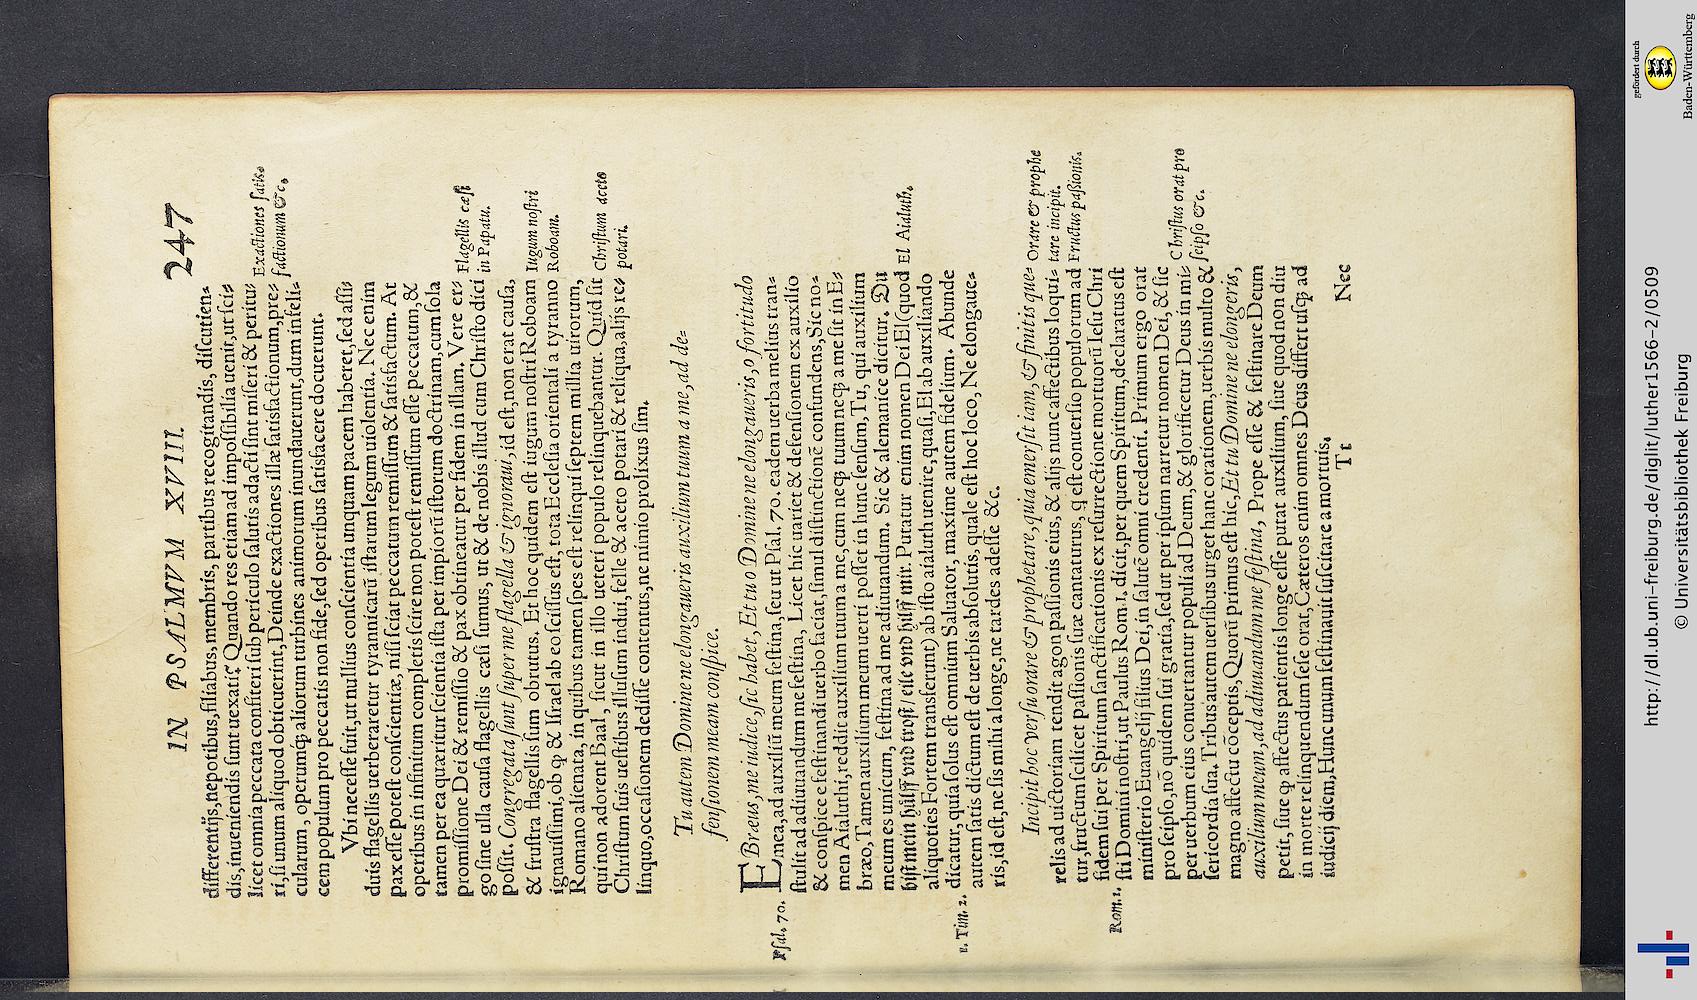 IN PSALMVM XVIII. 247
differentijs, nepotibus, filiabus, membris, partibus recogitandis, discutien-
dis, inueniendis sunt uexati? Quando res etiam ad impossibilia uenit, ut sci-
licet omnia peccata confiteri sub periculo salutis adacti sint miseri & peritu-
Exactiones satis-
ri, si unum aliquod obticuerint, Deinde exactiones illæ satisfactionum, pre-
factionum &c.
cularum, operumq́; aliorum turbines animorum inundauerunt, dum infeli-
cem populum pro peccatis non fide, sed operibus satisfacere docuerunt.
Vbi necesse fuit, ut nullius conscientia unquam pacem haberet, sed assi-
duis flagellis uerberaretur tyrannicarũ istarum legum uiolentia. Nec enim
pax esse potest conscientiæ, nisi sciat peccatum remissum & satisfactum. At
operibus in infinitum completis scire non potest remissum esse peccatum, &
tamen per ea quæritur scientia ista per impiorũ istorum doctrinam, cum sola
promissione Dei & remissio & pax obtineatur per fidem in illam. Vere er-
Flagellis cæsi
go sine ulla causa flagellis cæsi sumus, ut & de nobis illud cum Christo dici
in Papatu.
possit. Congregata sunt super me flagella & ignoraui, id est, non erat causa,
& frustra flagellis sum obrutus. Et hoc quidem est iugum nostri Roboam
Iugum nostri
ignauissimi, ob qđ & Israel ab eo scissus est, tota Ecclesia orientali a tyranno
Roboam.
Romano alienata, in quibus tamen spes est relinqui septem millia uirorum,
qui non adorent Baal, sicut in illo ueteri populo relinquebantur. Quid sit
Christum aceto
Christum suis uestibus illusum indui, felle & aceto potari & reliqua, alijs re-
potari.
linquo, occasionem dedisse contentus, ne nimio prolixus sim.
Tu autem Domine ne elongaueris auxilium tuum a me, ad de-
fensionem meam conspice.
EBræus, me iudice, sic habet, Et tu o Domine ne elongaueris, o fortitudo
Psal. 70.
mea, ad auxiliũ meum festina, seu ut Psal. 70. eadem uerba melius tran-
stulit ad adiuuandum me festina, Licet hic uariet & defensionem ex auxilio
& conspice e festinandi uerbo faciat, simul distinctionẽ confundens, Sic no-
men Aialuthi, reddit auxilium tuum a me, cum neq; tuum neq; a me sit in E-
bræo, Tamen auxilium meum uerti posset in hunc sensum, Tu, qui auxilium
meum es unicum, festina ad me adiuuandum. Sic & alemanice dicitur. Du
bist mein hilff vnd trost / eile vnd hilff mir. Putatur enim nomen Dei El (quod
El Aialuth.
aliquoties Fortem transferunt) ab isto aialuth uenire, quasi, El ab auxiliando
1. Tim. 2.
dicatur, quia solus est omnium Saluator, maxime autem fidelium. Abunde
autem satis dictum est de uerbis absolutis, quale est hoc loco, Ne elongaue-
ris, id est, ne sis mihi a longe, ne tardes adesse &c.
Incipit hoc versu orare & prophetare, quia emersit iam, & finitis que-
Orare & prophe
relis ad uictoriam tendit agon passionis eius, & alijs nunc affectibus loqui-
tare incipit.
tur, fructum scilicet passionis suæ cantaturus, q̃ est conuersio populorum ad
Fructus passionis.
fidem sui per Spiritum sanctificationis ex resurrectione mortuorũ Iesu Chri
Rom. 1.
sti Domini nostri, ut Paulus Rom. 1. dicit, per quem Spiritum, declaratus est
ministerio Euangelij filius Dei, in salutẽ omni credenti. Primum ergo orat
pro seipso, nõ quidem sui gratia, sed ut per ipsum narretur nomen Dei, & sic
Christus orat pro
per uerbum eius conuertantur populi ad Deum, & glorificetur Deus in mi-
seipso &c.
sericordia sua. Tribus autem uersibus urget hanc orationem, uerbis multo &
magno affectu cõceptis, Quorũ primus est hic, Et tu Domine ne elongeris,
auxilium meum, ad adiuuandum me festina, Prope esse & festinare Deum
petit, siue qđ affectus patientis longe esse putat auxilium, siue quod non diu
in morte relinquendum sese orat, Cæteros enim omnes Deus differt usq; ad
iudicij diem, Hunc unum festinauit suscitare a mortuis,
Tt
Nec
http://dl.ub.uni-freiburg.de/diglit/luther1566-2/0509
© Universitätsbibliothek Freiburg
gefördert durch
Baden-Württemberg